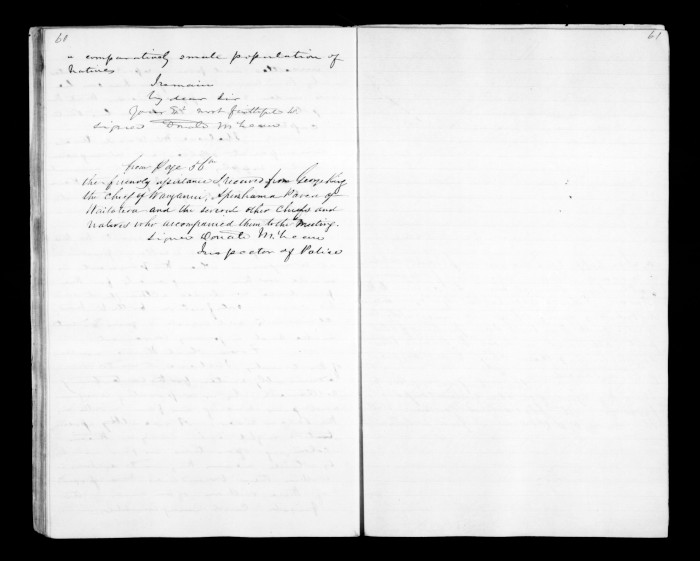 60
61
a comparatively small population of
Natives
I remain
My dear Sir
Your Ob't most faithful St
signed Donald McLean
from Page 56th
the friendly assistance I received from George King
the Chief of Wanganui,
and the several other Chiefs and
Natives who accompanied them to the Meeting.
Signed Donald McLean
Inspector of Police